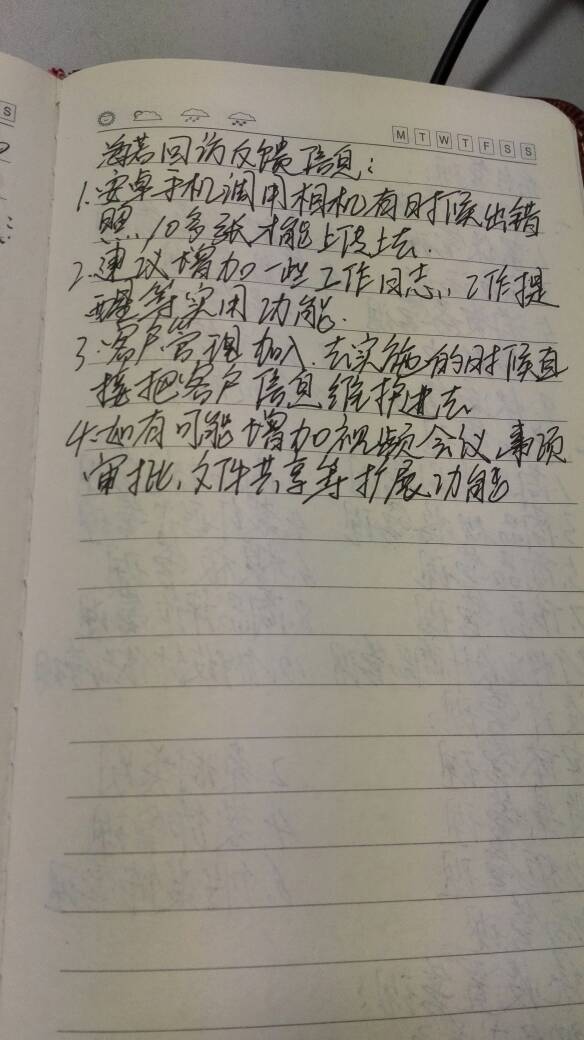 M T W T F S S
S
海若回访反馈信息：
1.安卓手机调用相机有时候出错
照.10多张才能上传上去.
2.建议增加一些工作日志、工作提
醒等实用功能.
3.客户管理加入.去实施的时候直
接把客户信息维护进去
4.如有可能增加视频会议、事项
审批、文件共享等扩展功能